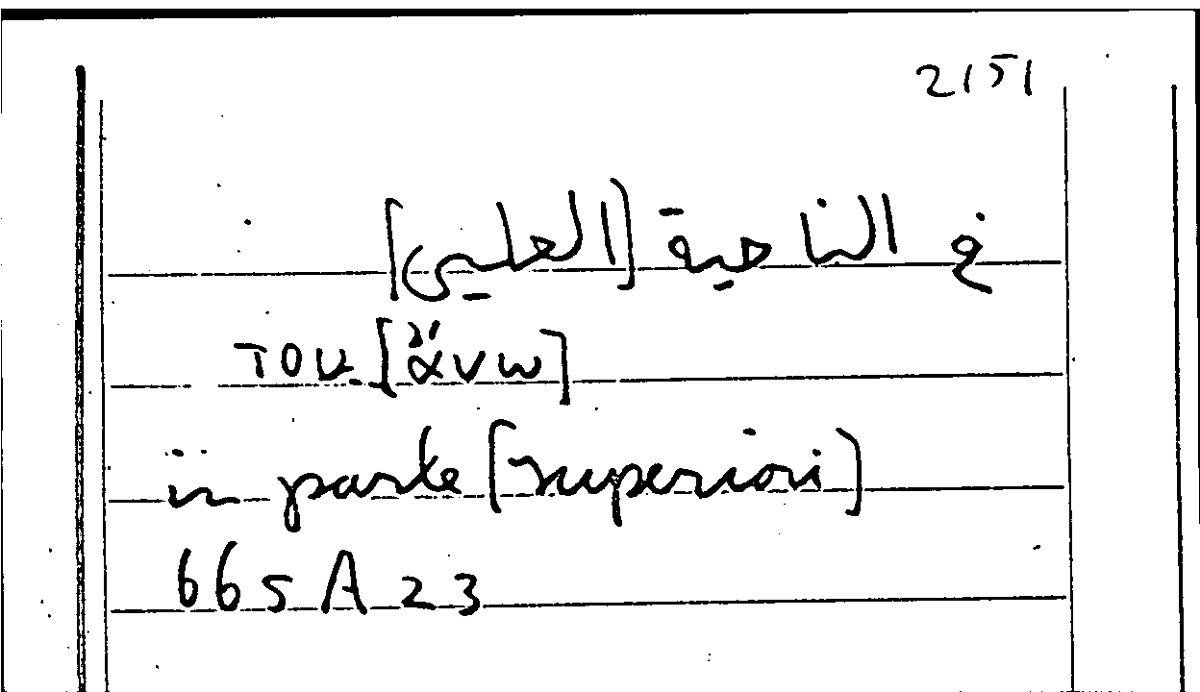 2151
فى الناحية [العليى]
του [ἄνω]
in parte [superiori]
665 A 23